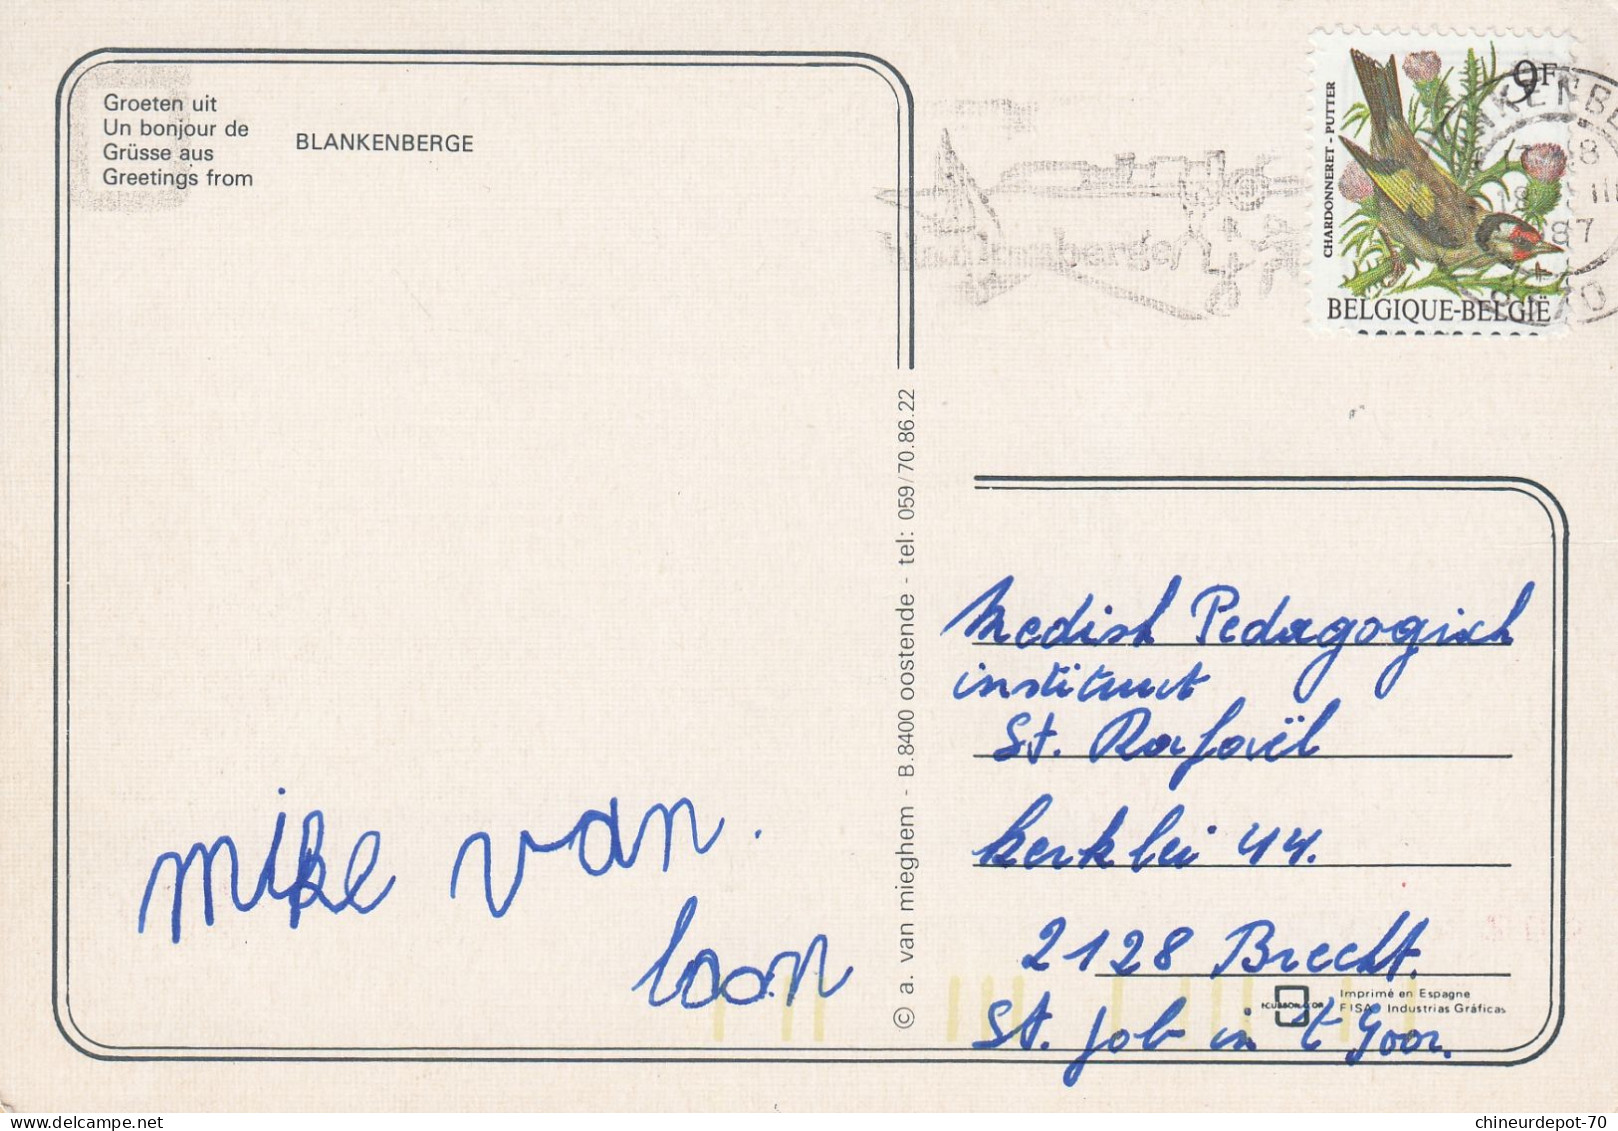 Groeten uit
Un bonjour de
Grüsse aus
Greetings from
BLANKENBERGE
9F
CHARDONNERET - PUTTER
BELGIQUE-BELGIË
87
© a. van mieghem - B.8400 oostende - tel: 059/70.86.22
mike van.
loon
Medish Pedagogisch
instituut
St. Rafaël
kerklei 44.
2128 Brecht.
St. Job in t Goor.
Imprimé en Espagne
FISA Industrias Gráficas
chineurdepot-70